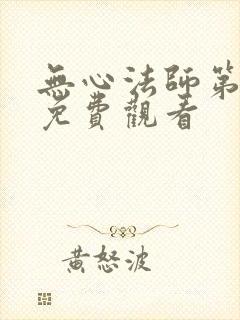 無心法師第
免費觀看
黃怒波